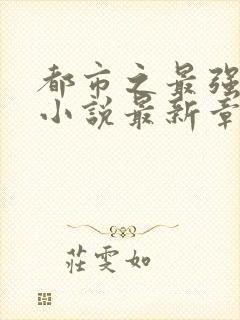 都市之最强
小说最新章
莊雯如